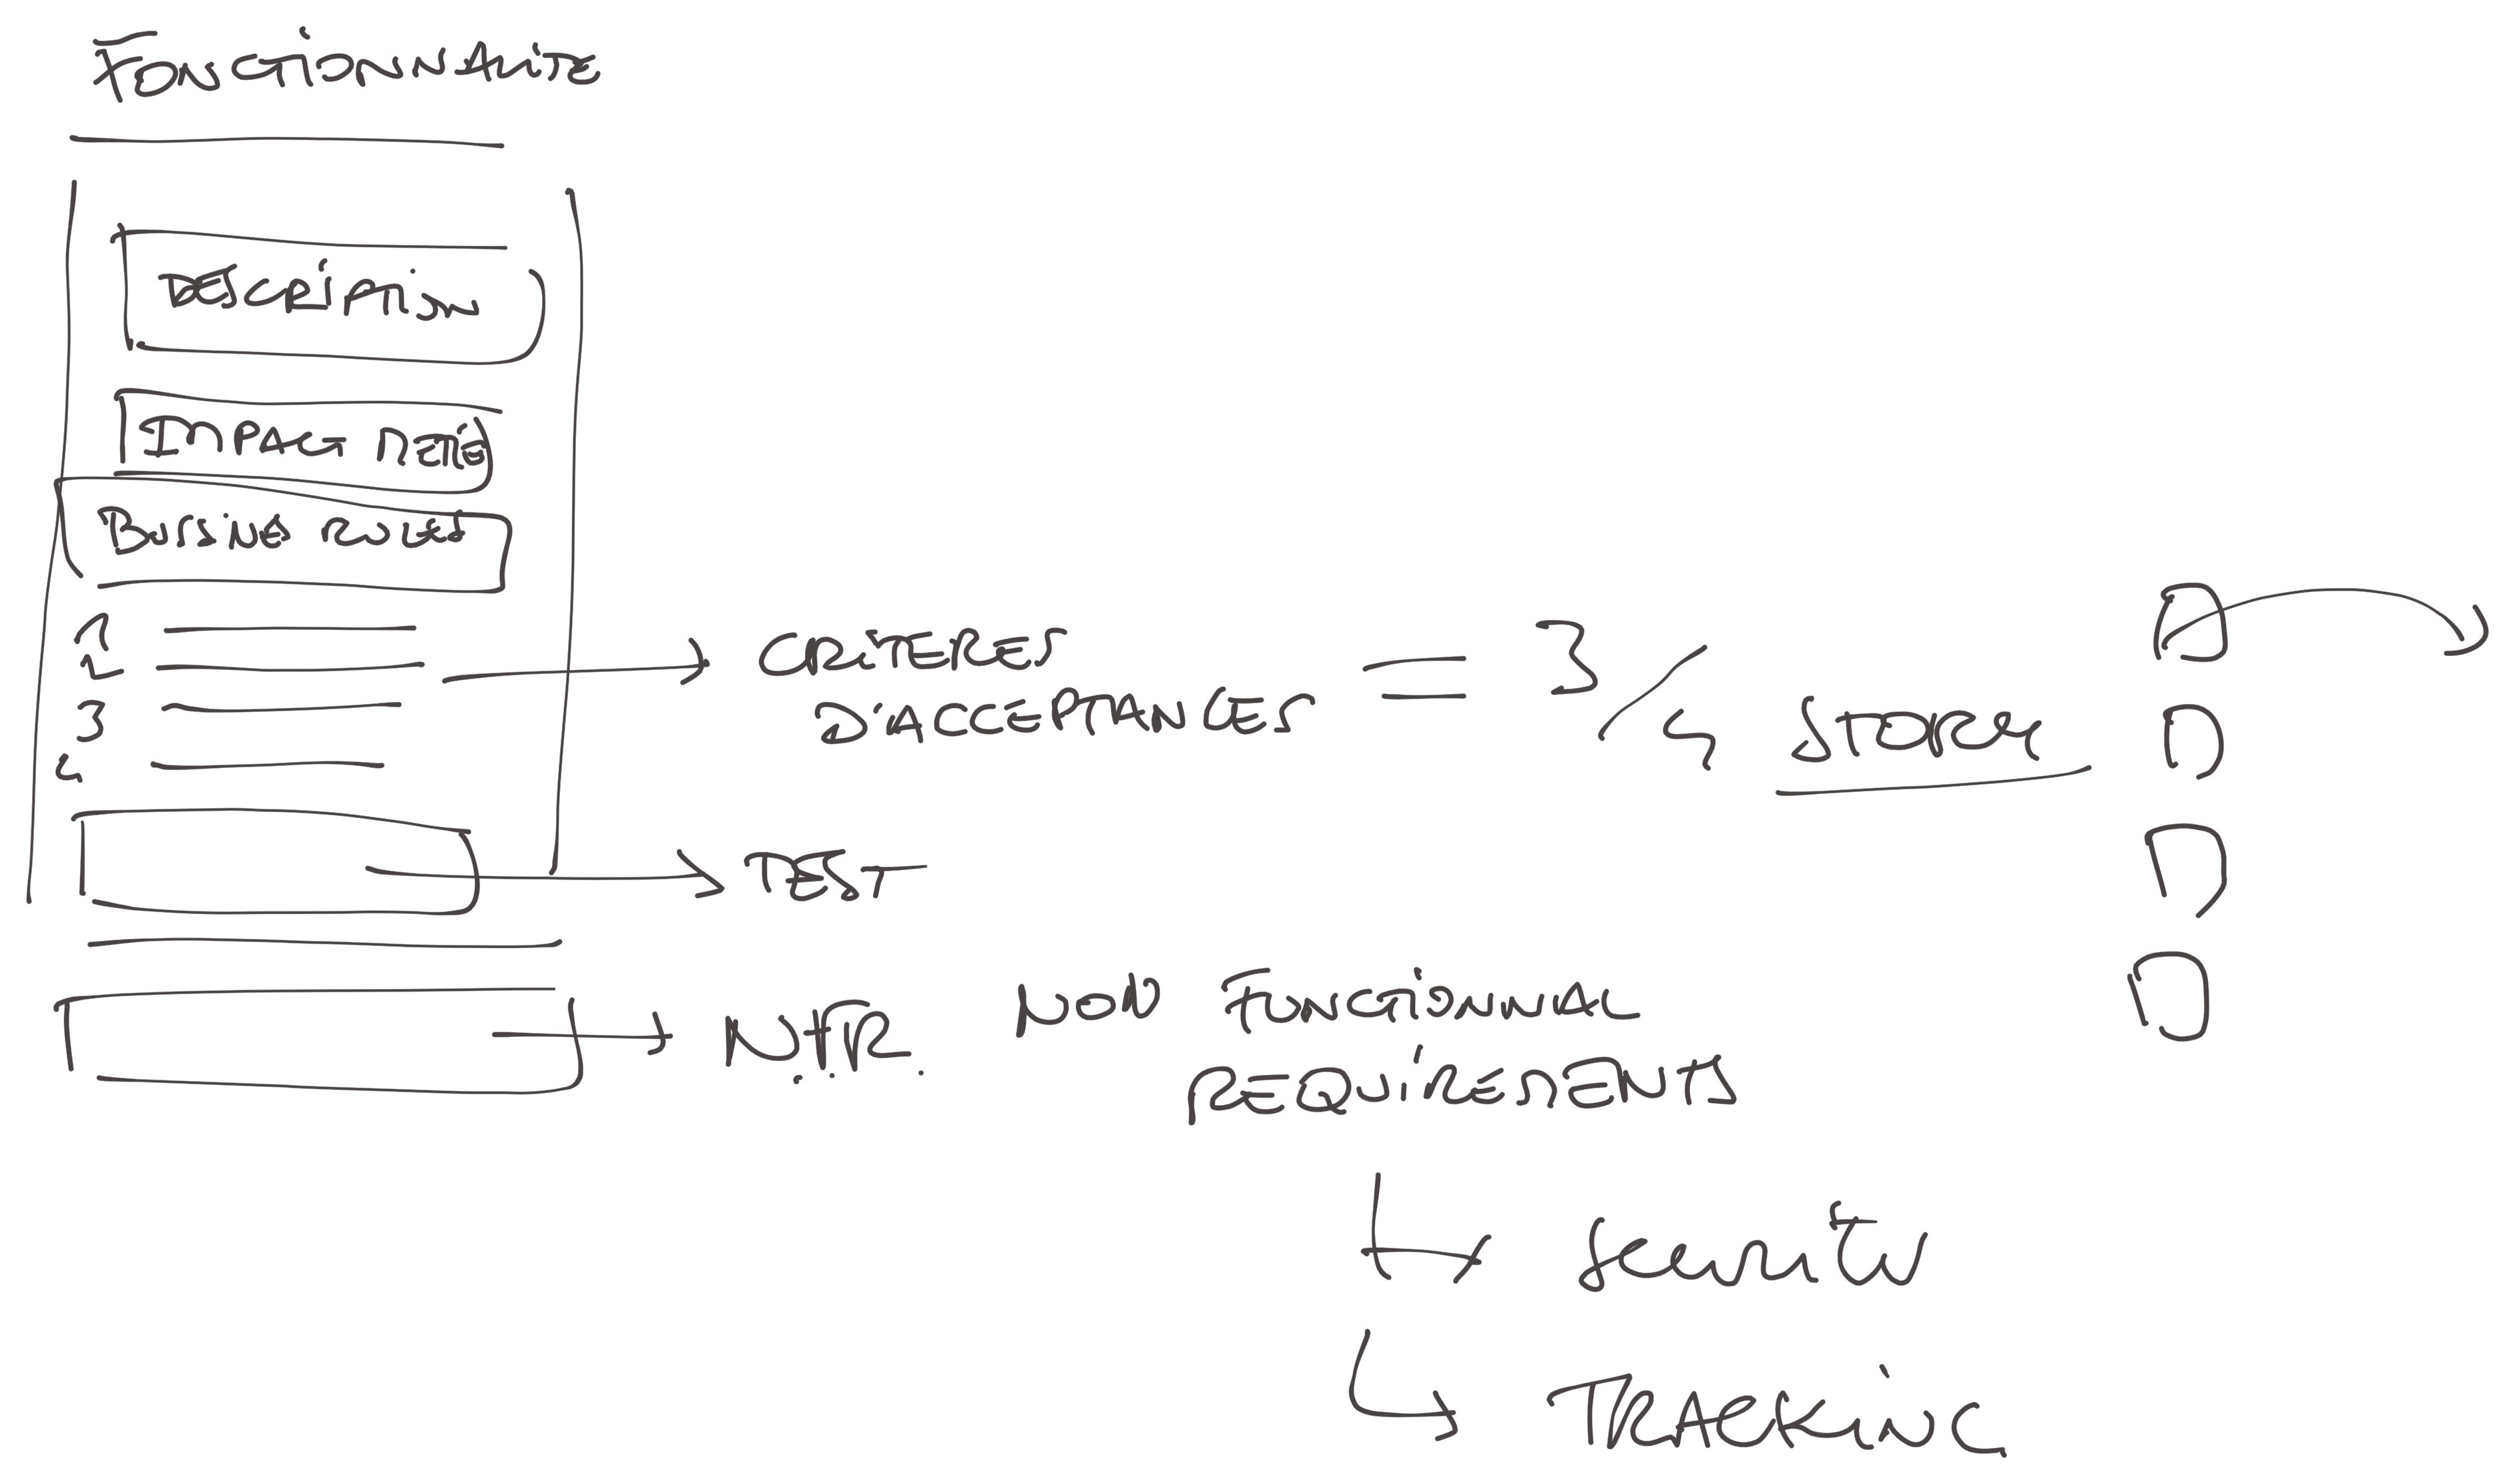 FONCTIONNALITE
DESCRIPTION
IMPACT METIER
BUSINESS RULES
1
2
3
4
CRITERES
D'ACCEPTANCES = 3/4 STORY
TEST
N.F.R. NON FONCTIONNAL
REQUIREMENTS
Security
TRACKING